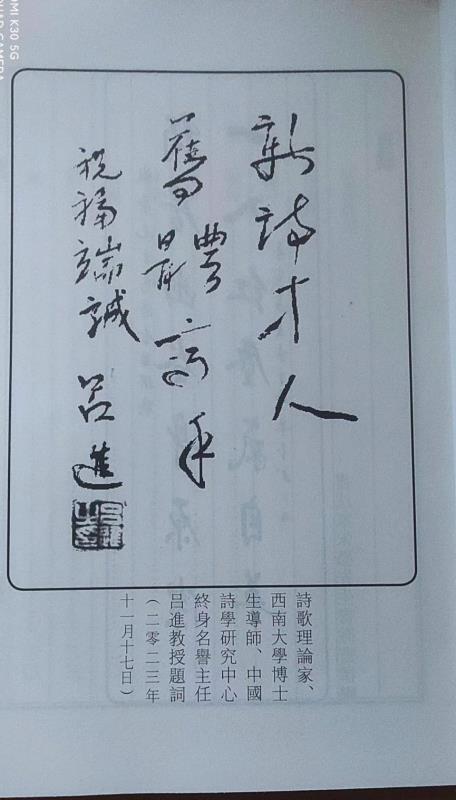 新詩才人
舊體高手
祝福端誠
呂進
詩歌理論家、
西南大學博士
生導師、中國
詩學研究中心
終身名譽主任
呂進教授題詞
(二零二三年
十一月十七日)
MI K30 5G